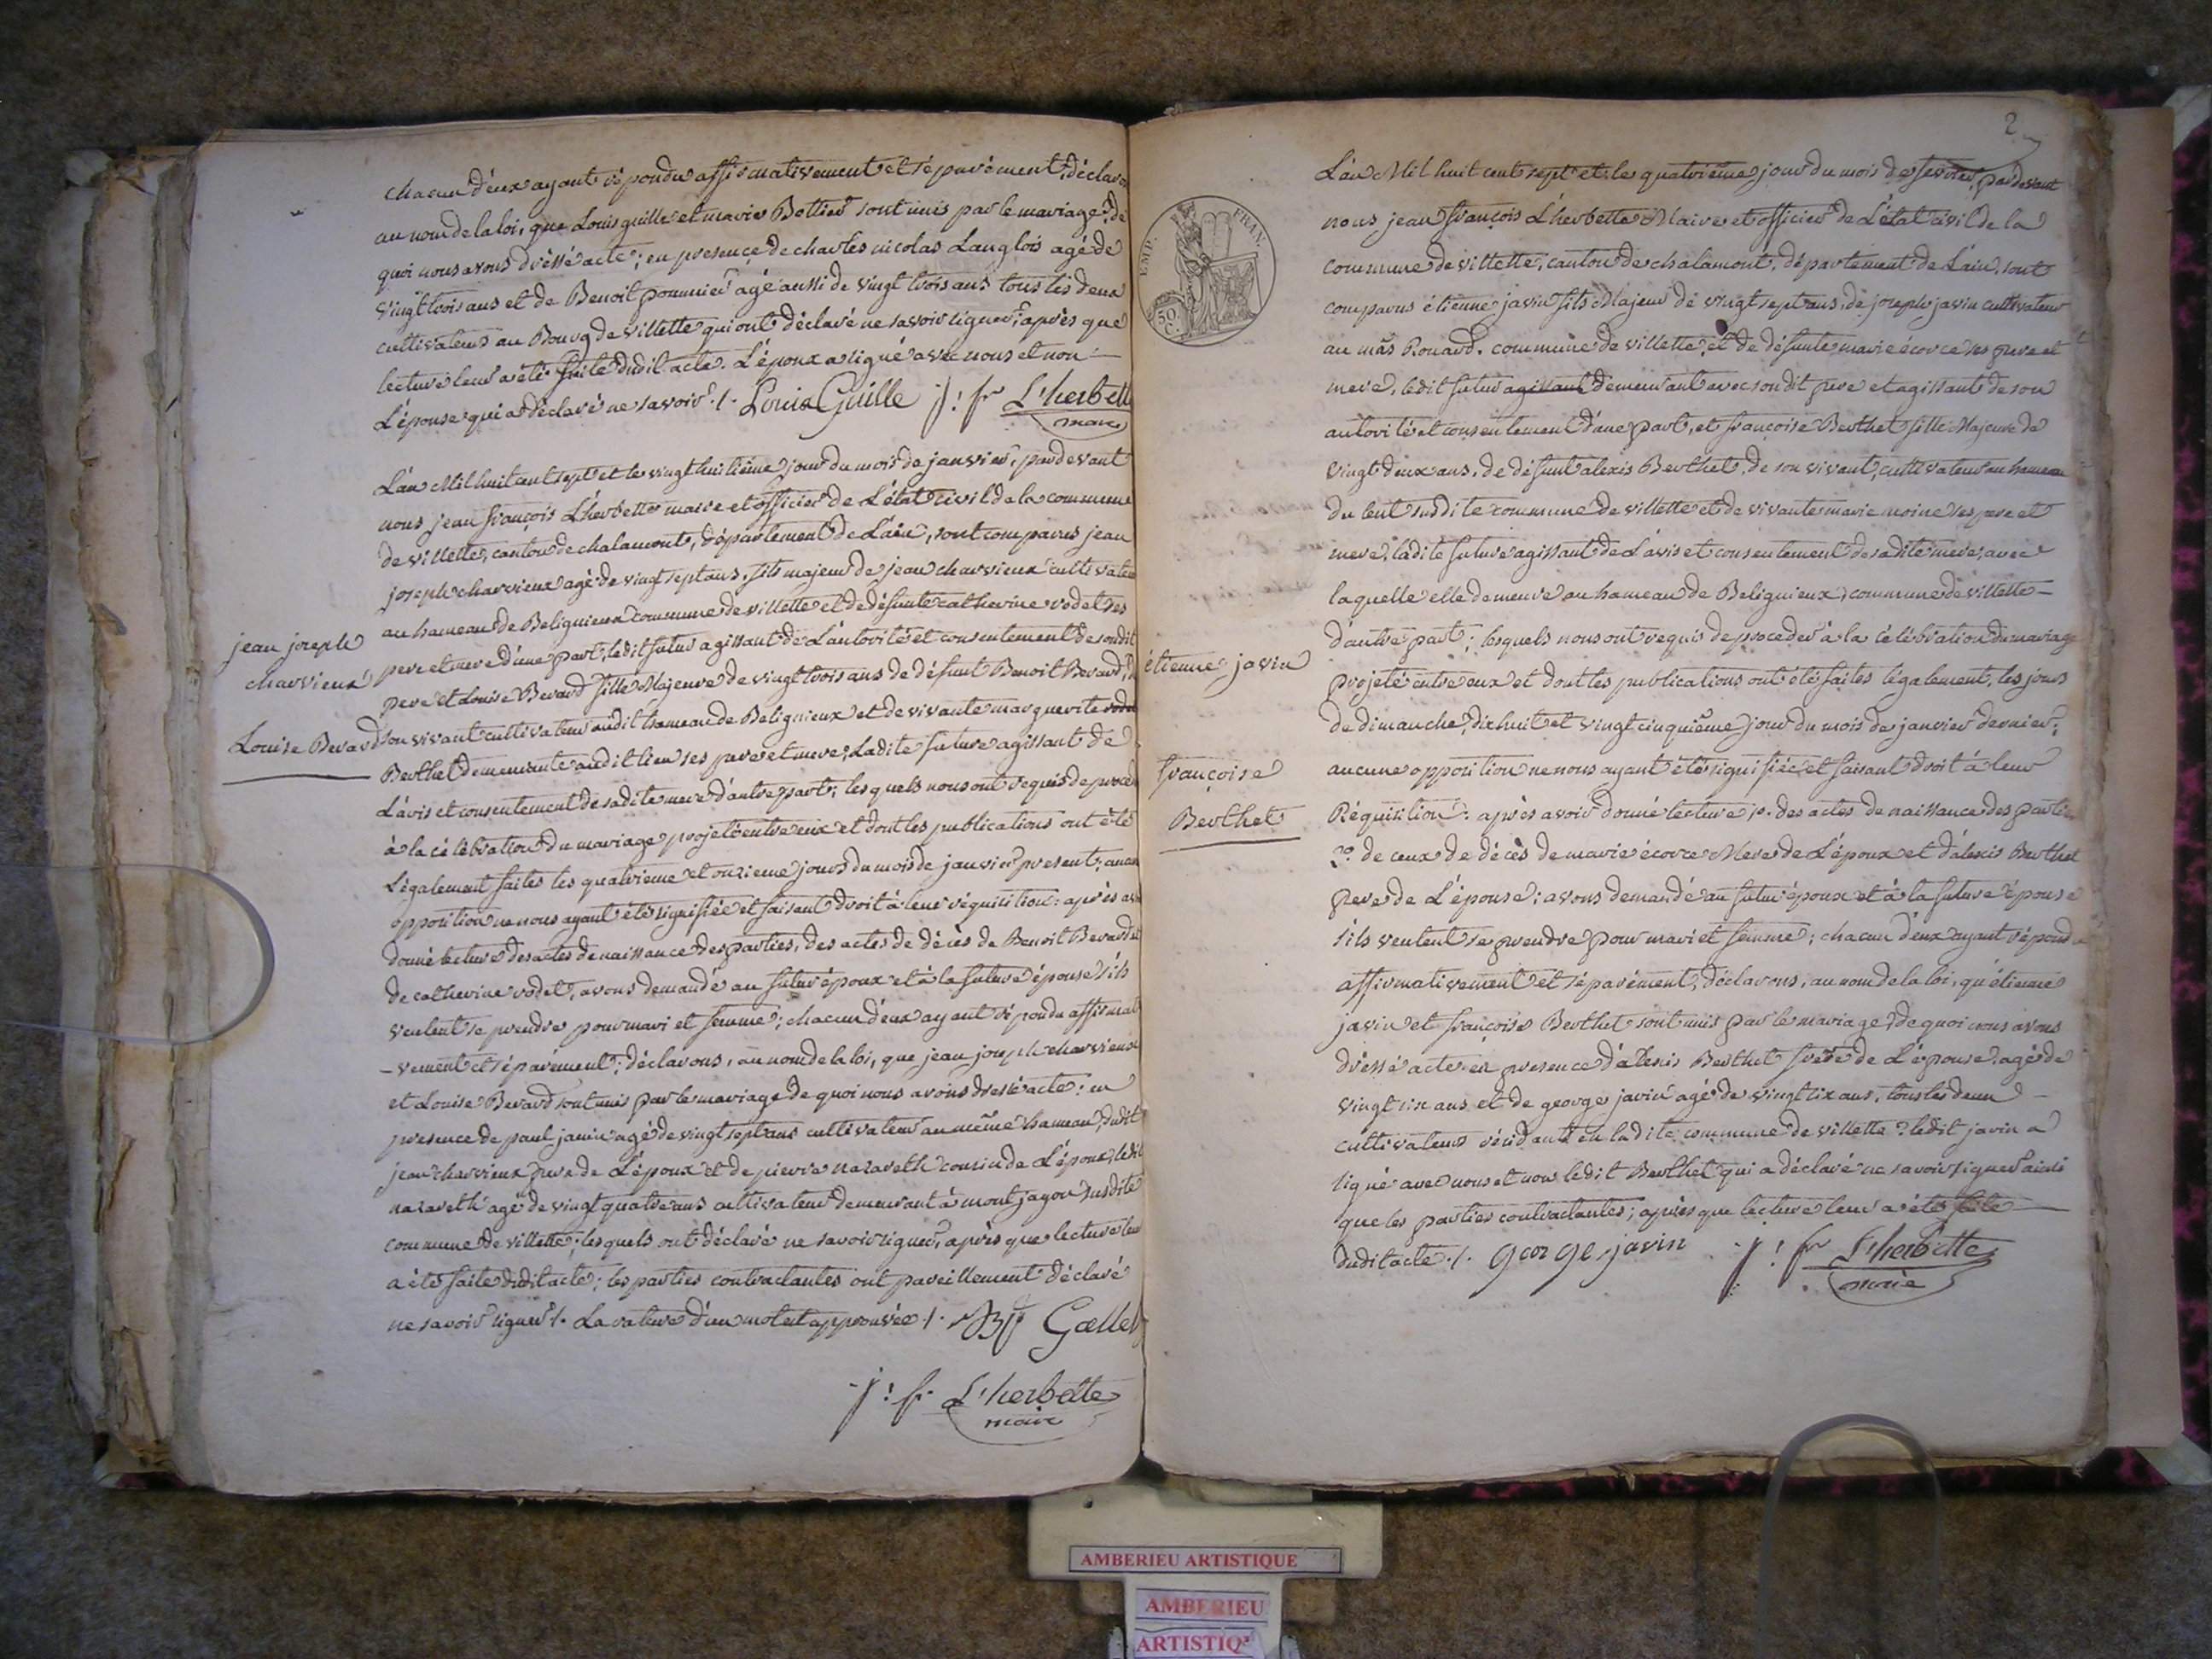 chacun d'eux ayant répondu affirmativement et séparément, déclarons
au nom de la loi, que Louis guille et marie Bottier sont unis par le mariage; de
quoi nous avons dréssé acte; en presence de charles nicolas Langlois agé de
vingt trois ans et de Benoit pommier agé aussi de vingt trois ans tous les deux
cultivateurs au Bourg de villette qui ont déclaré ne savoir signer, après que
lecture leur a été faite dudit acte. L'époux a signé avec nous et non
L'épouse qui a déclaré ne savoir ./. Louis Guille j! fr L'herbette
maire
L'an Mil huit cent sept et le vingt huitième jour du mois de janvier, pardevant
nous jean françois L'herbette maire et officier de L'état civil de la commune
de villette, canton de chalamont, département de L'ain, sont comparus jean
joseph charvieux agé de vingt sept ans, fils majeur de jean charvieux cultivateur
au hameau de Belignieux commune de villette et de défunte catherine vodet ses
jean joseph
charvieux
pere et mere d'une part, ledit futur agissant de L'autorité et consentement de sondit
pere et Louise Berard fille Majeure de vingt trois ans de défunt Benoit Berard, de
Louise Berard
son vivant cultivateur audit hameau de Belignieux et de vivante marguerite
Berthet demeurante audit lieu ses pere et mere, Ladite future agissant de
L'avis et consentement de sadite mere d'autre part; lesquels nous ont requis de proceder
à la célébration du mariage projeté entre eux et dont les publications ont été
Légalement faites les quatrieme et onzieme jours du mois de janvier present, aucune
opposition ne nous ayant été signifiée et faisant droit à leur réquisition: après avoir
donné lecture des actes de naissance des parties, des actes de décès de Benoit Berard et
de catherine vodet, avons demandé au futur époux et à la future épouse s'ils
veulent se prendre pour mari et femme; chacun d'eux ayant répondu affirmati
-vement et séparément; déclarons, au nom de la loi, que jean joseph charvieux
et Louise Berard sont unis par le mariage de quoi nous avons dressé acte: en
presence de paul janin agé de vingt sept ans cultivateur au même hameau, dudit
jean charvieux pere de L'époux et de pierre nazareth cousin de L'époux, ledit
nazareth agé de vingt quatre ans cultivateur demeurant à mont jayon susdite
commune de villette; lesquels ont déclaré ne savoir signer, après que lecture leur
a été faite dudit acte; les parties contractantes ont pareillement déclaré
ne savoir signer ./. La rature d'un mot est approuvée ./.
j! f. L'herbette
maire
2
EMP. FRAN.
50 C.
L'an Mil huit cent sept et le quatrième jour du mois de fevrier, pardevant
nous jean françois L'herbette Maire et officier de L'état civil de la
commune de villette, canton de chalamont, département de L'ain, sont
comparus étienne javin fils Majeur de vingt sept ans, de joseph javin cultivateur
au mas Rouard, commune de villette, et de défunte marie écorce ses pere et
mere, ledit futur agissant demeurant avec son dit pere et agissant de son
autorité et consentement d'une part, et françoise Berthet fille Majeure de
vingt deux ans, de défunt alexis Berthet, de son vivant, cultivateur au hameau
du lent susdite commune de villette et de vivante marie moine ses pere et
mere, ladite future agissant de L'avis et consentement de sadite mere, avec
laquelle elle demeure au hameau de Belignieux, commune de villette –
d'autre part; lesquels nous ont requis de proceder à la célébration du mariage
étienne javin
projeté entre eux et dont les publications ont été faites légalement, les jours
de dimanche, dix huit et vingt cinquième jour du mois de janvier dernier,
françoise
Berthet
aucune opposition ne nous ayant été signifiée et faisant droit à leur
Réquisition: après avoir donné lecture 1°. des actes de naissance des parties
2° de ceux de décès de marie écorce Mere de L'époux et d'alexis Berthet
Pere de L'épouse: avons demandé au futur époux et à la future épouse
s'ils veulent se prendre pour mari et femme; chacun d'eux ayant répondu
affirmativement et séparément, déclarons, au nom de la loi, qu'étienne
javin et françoise Berthet sont unis par le mariage, de quoi nous avons
dréssé acte en presence d'alexis Berthet frère de L'épouse, agé de
vingt six ans et de george javin agé de vingt six ans, tous les deux –
cultivateurs résidants en ladite commune de villette, ledit javin a
signé avec nous et non ledit Berthet qui a déclaré ne savoir signer ainsi
que les parties contractantes; après que lecture leur a été faite
dudit acte ./. george javin j! fr L'herbette
maire
AMBERIEU ARTISTIQUE
AMBERIEU
ARTISTIQ